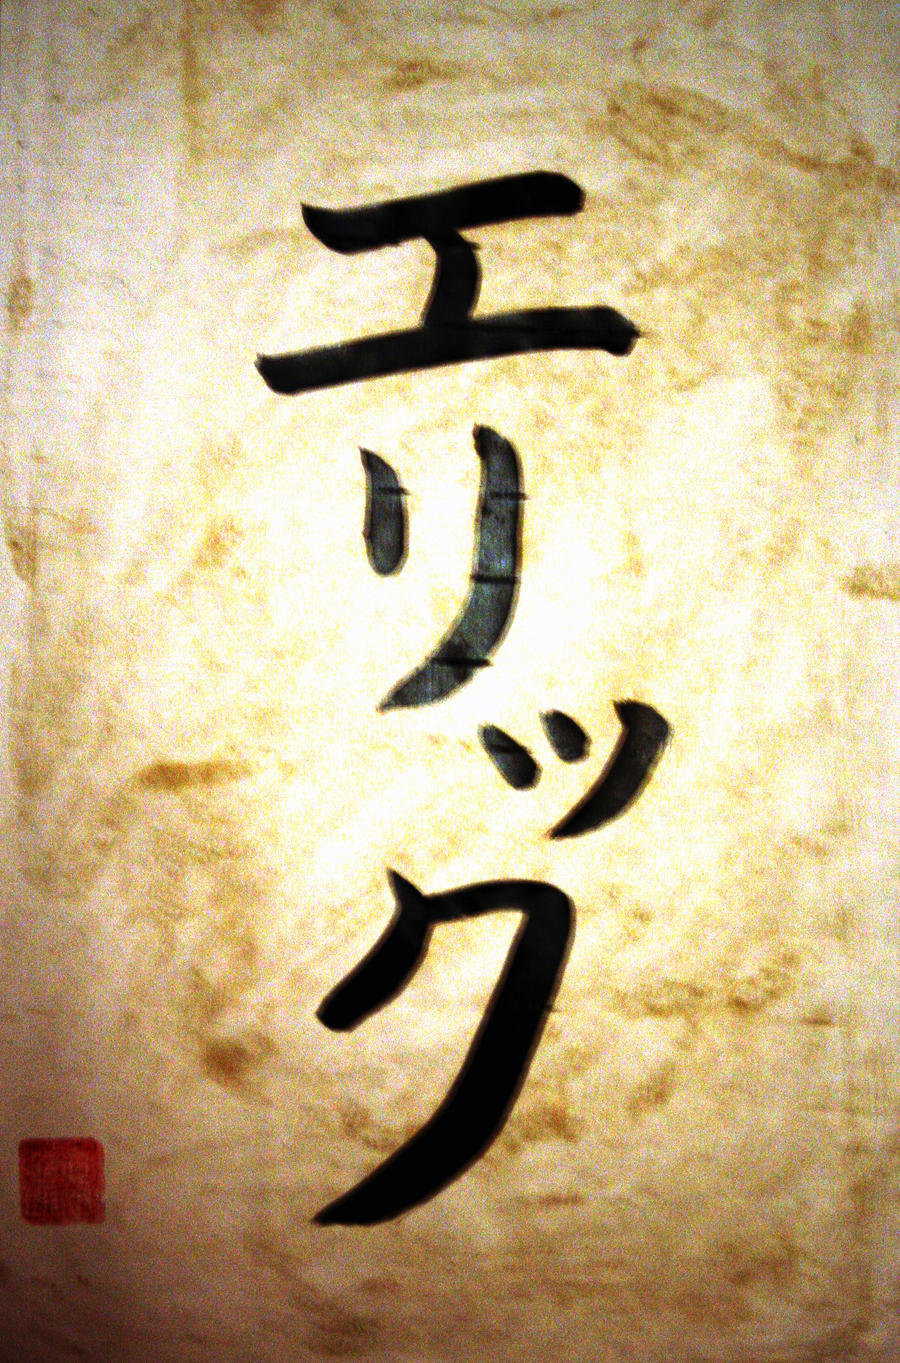 エリック